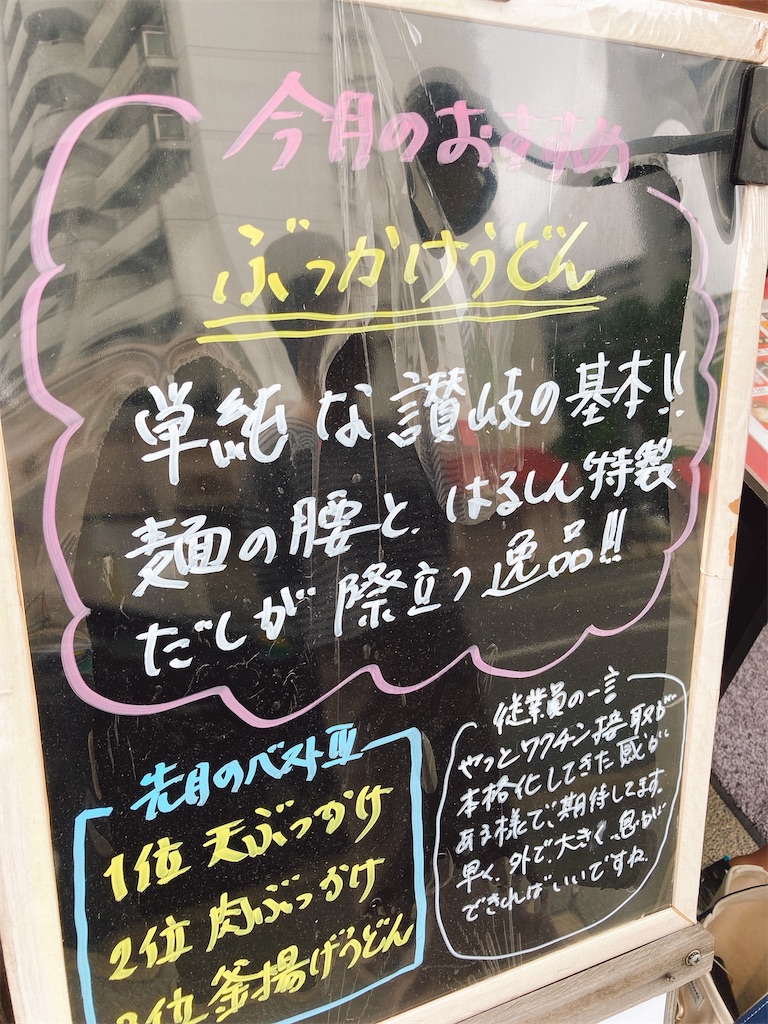 今月のおすすめ
ぶっかけうどん
単純な讃岐の基本!!
麺の腰と、はるしん特製
だしが際立つ逸品!!
先月のベストⅢ
1位 天ぶっかけ
2位 肉ぶっかけ
3位 釜揚げうどん
従業員の一言
やっとワクチン接取が
本格化してきた感が
ある様で、期待してます。
早く、外で、大きく、息が
できればいいですね。